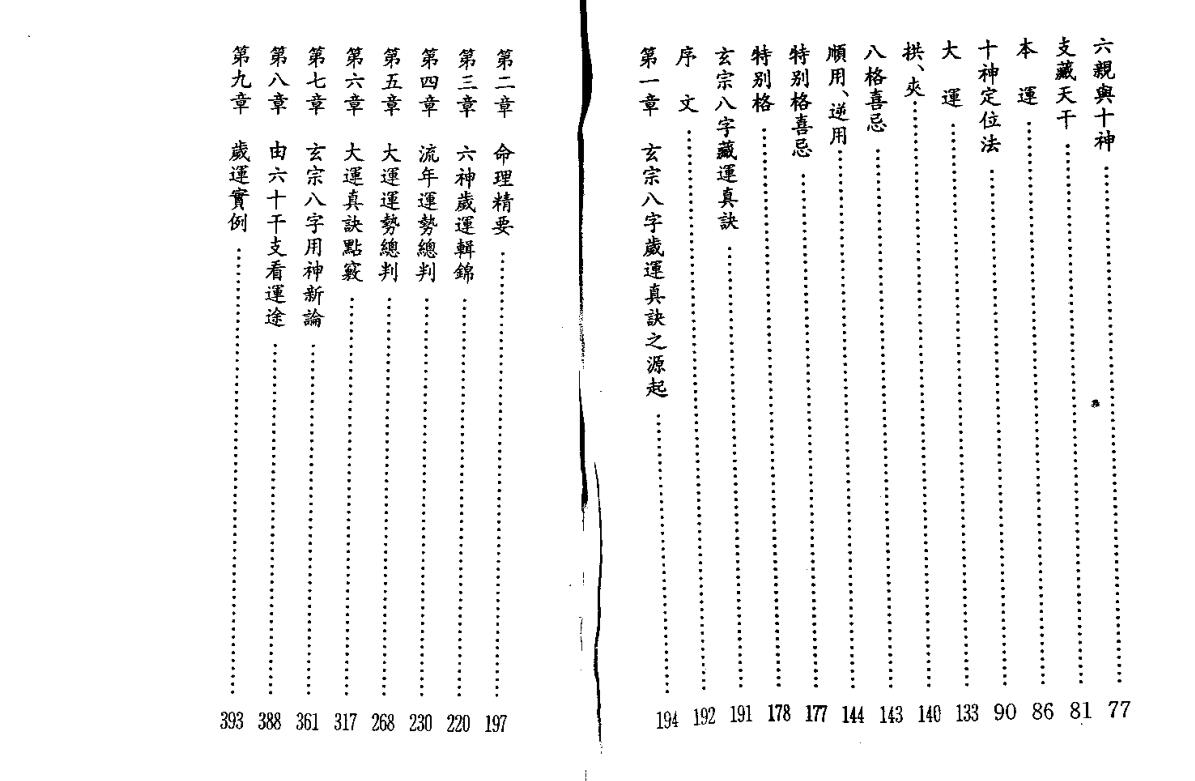 六親與十神……77
支藏天干……81
本運……86
十神定位法……90
大運……133
拱、夾……140
八格喜忌……143
順用、逆用……144
特別格喜忌……177
特別格……178
玄宗八字藏運真訣……191
序文……192
第一章 玄宗八字歲運真訣之源起……194
第二章 命理精要……197
第三章 六神歲運輯錦……220
第四章 流年運勢總判……230
第五章 大運運勢總判……268
第六章 大運真訣點竅……317
第七章 玄宗八字用神新論……361
第八章 由六十干支看運途……388
第九章 歲運實例……393